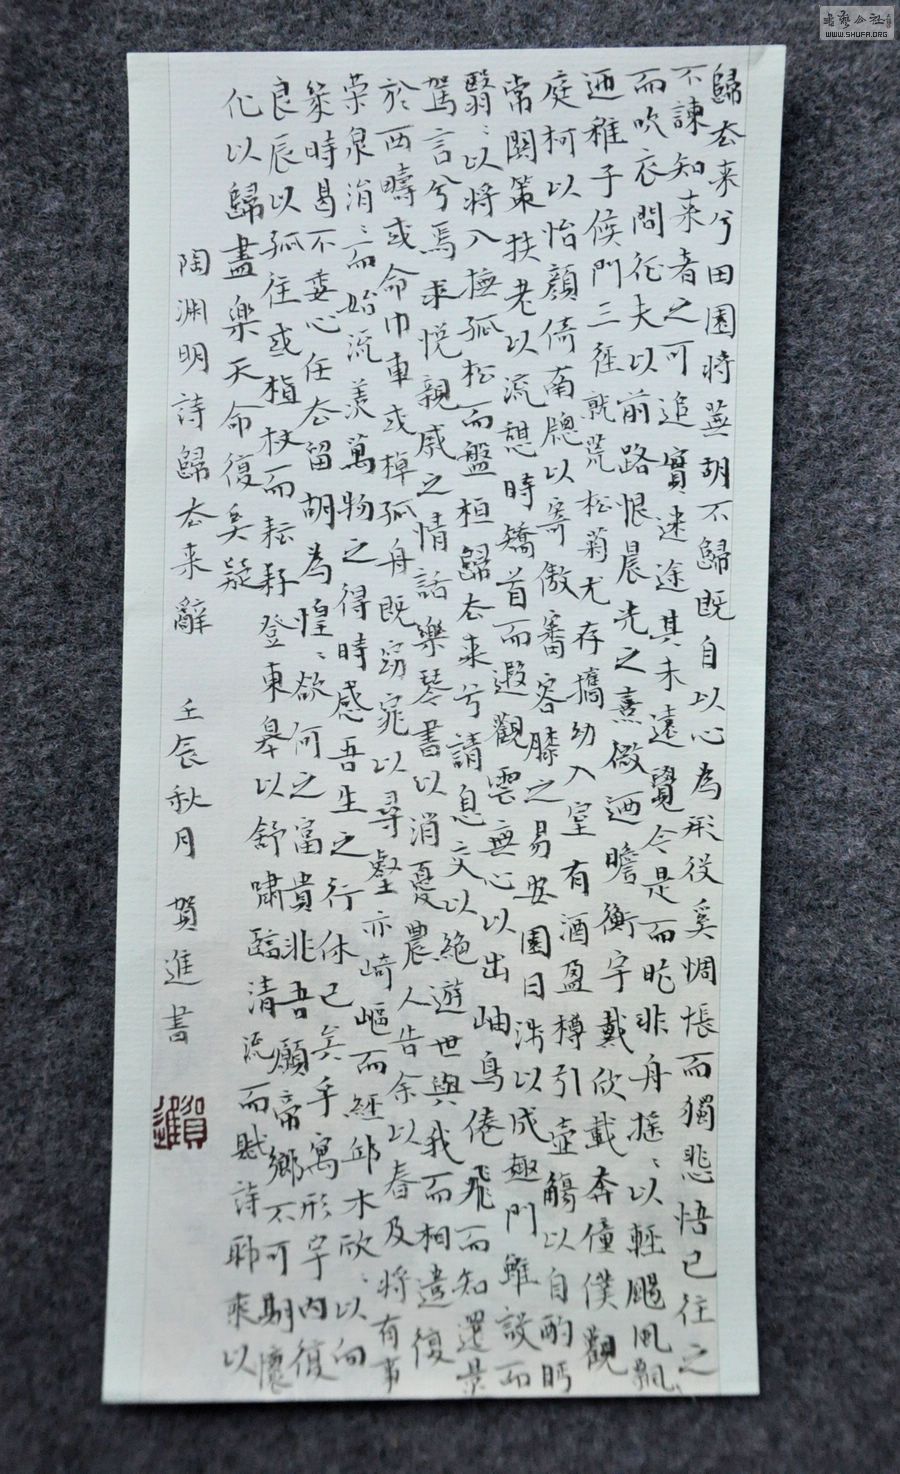 歸去来兮田園將蕪胡不歸既自以心為形役奚惆悵而獨悲悟已往之
不諫知来者之可追實迷途其未遠覺今是而昨非舟搖〻以輕颺風飄
而吹衣問征夫以前路恨晨光之熹微迺瞻衡宇戴欣載奔僮僕觀
迺稚子候門三径就荒松菊尤存攜幼入室有酒盈樽引壺觴以自酌眄
庭柯以怡顏倚南牕以寄傲審容膝之易安園日涉以成趣門雖設而
常關策扶老以流憩時矯首而遐觀雲無心以出岫鳥倦飛而知還景
翳〻以將入撫孤松而盤桓歸去来兮請息交以絕遊世與我而相遺復
駕言兮焉求悅親戚之情話樂琴書以消憂農人告余以春及將有事
於西疇或命巾車或棹孤舟既窈窕以尋壑亦崎嶇而經邱木欣〻以向
荣泉涓〻而始流羨萬物之得時感吾生之行休已矣乎寓形宇内復
幾時曷不委心任去留胡為惶〻欲何之富貴非吾願帝鄉不可期懷
良辰以孤往或植杖而耘耔登東皋以舒嘯臨清流而賦詩聊乘以
化以歸盡樂天命復奚疑
陶淵明詩歸去来辭 壬辰秋月 賀進書
賀進
書藝公社
WWW.SHUFA.ORG